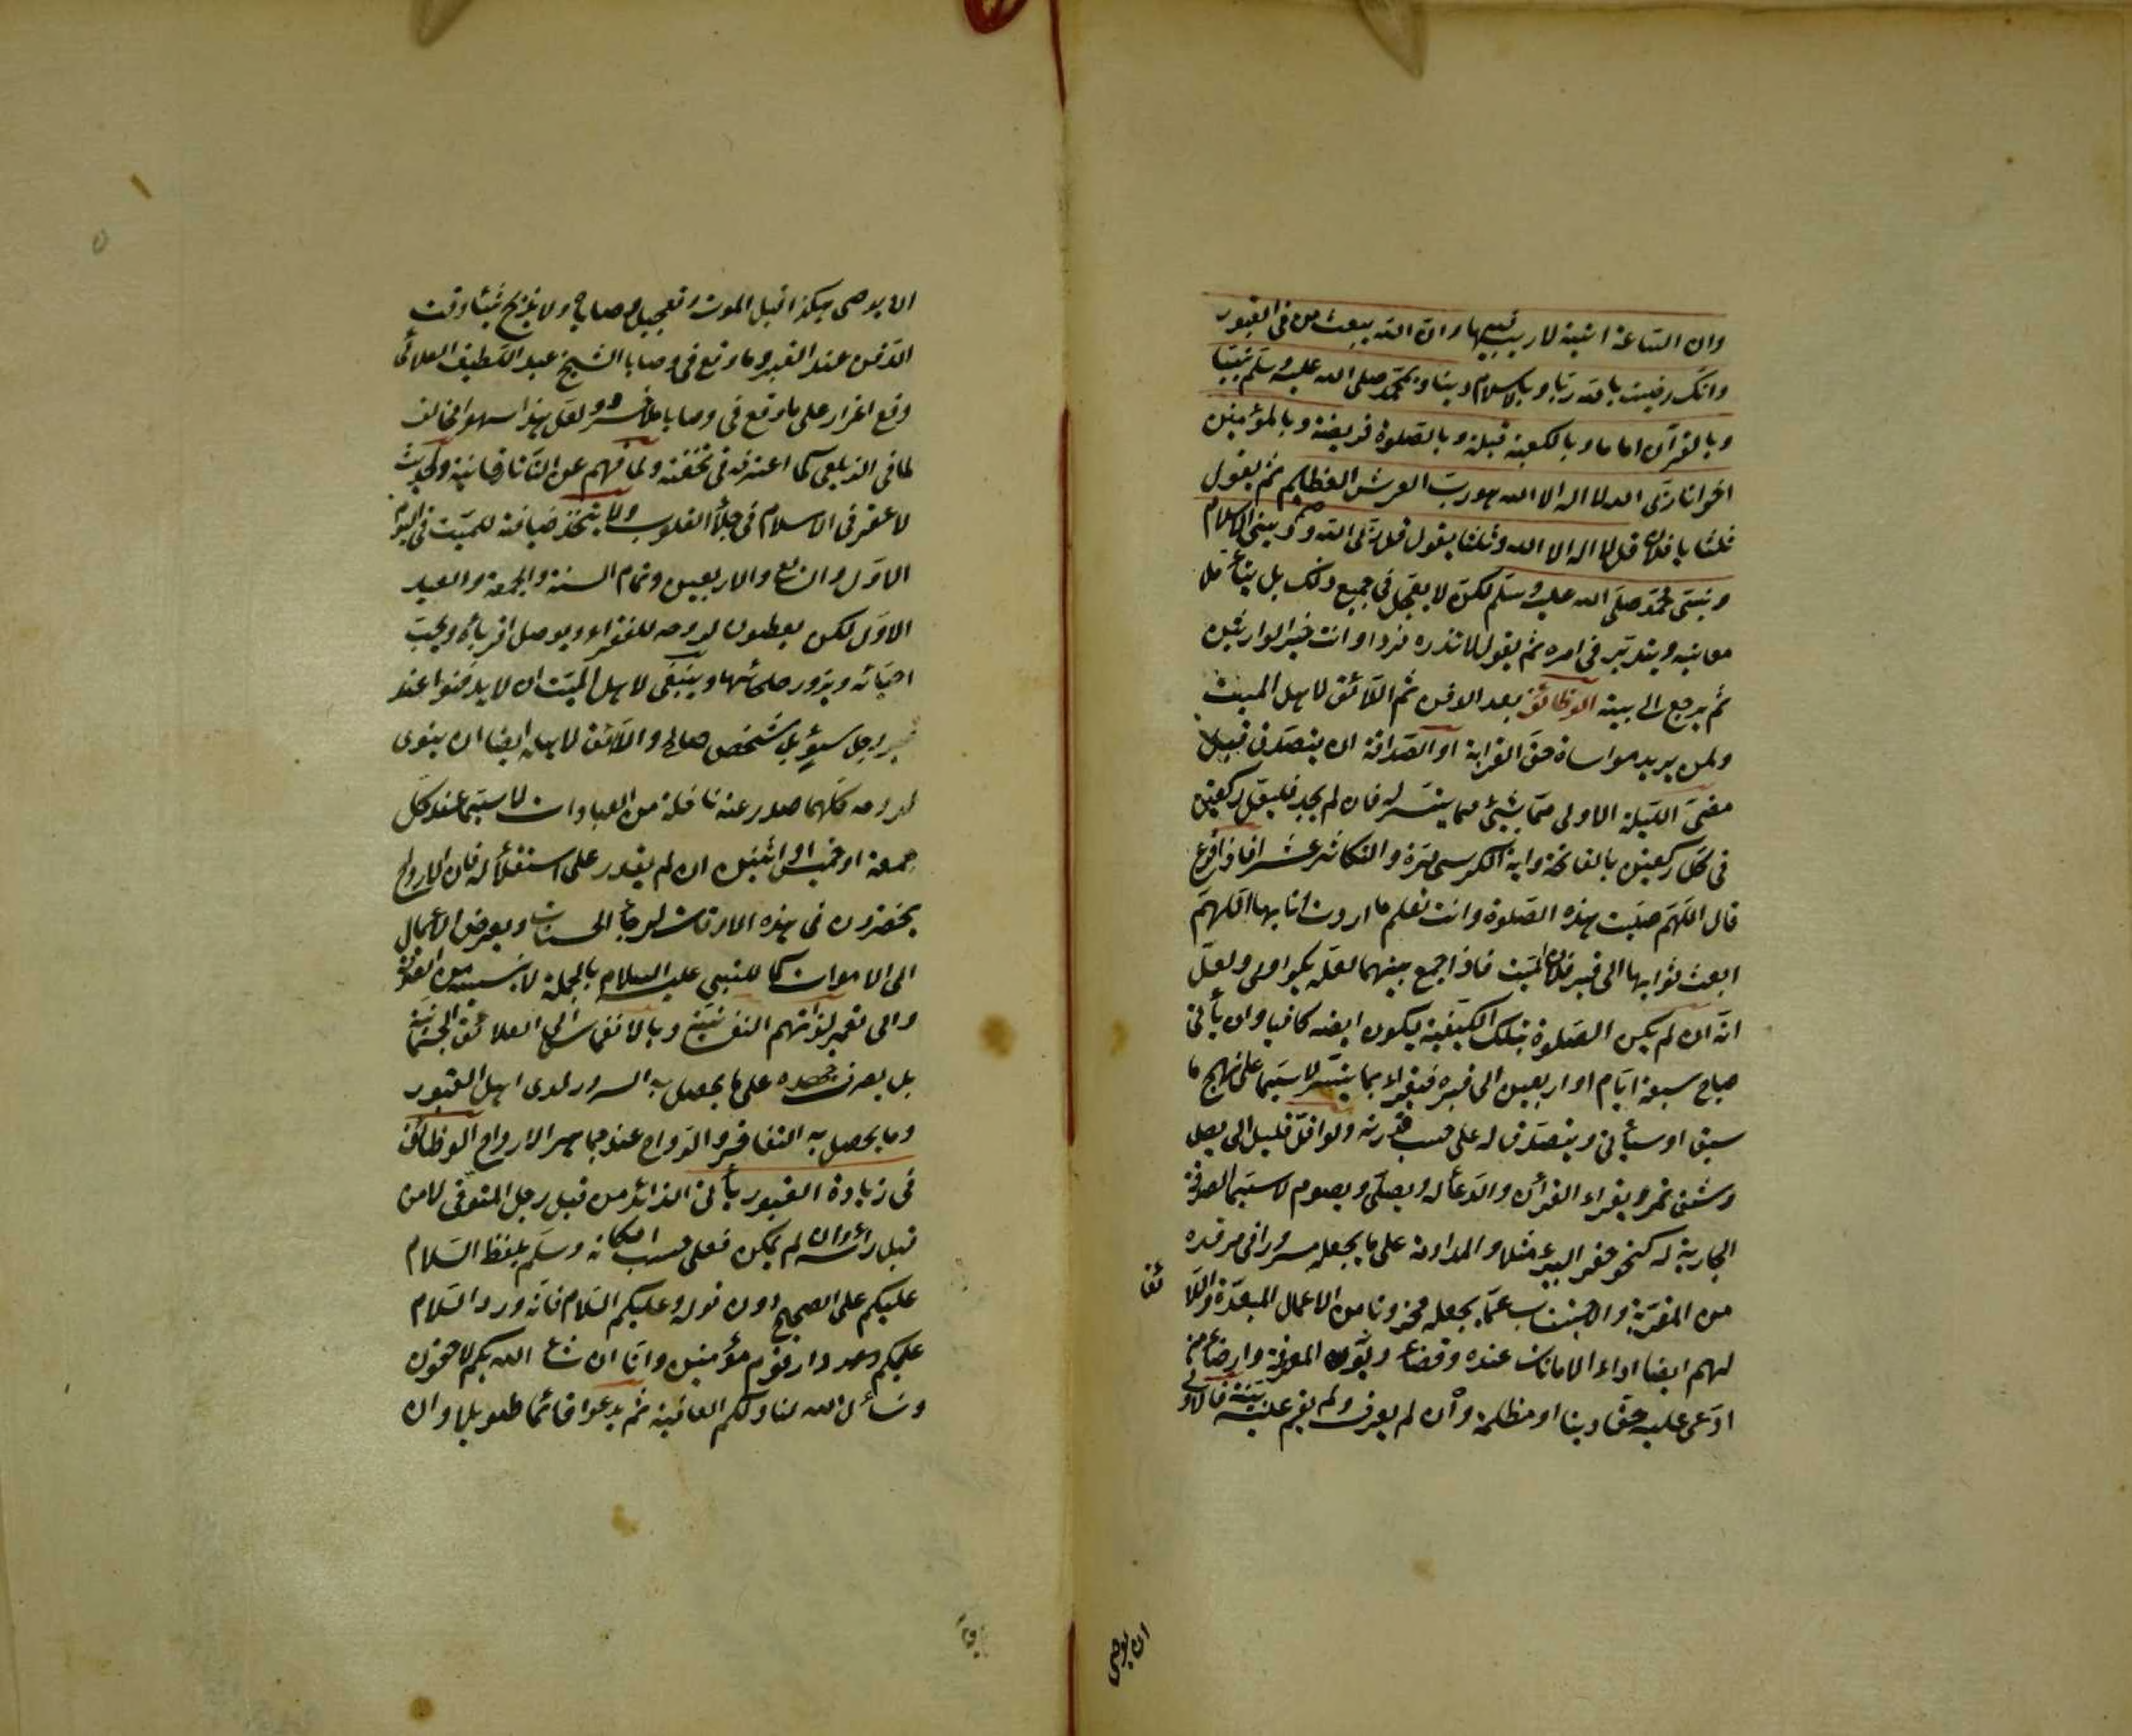 وان الساعة اتية لاريب فيها وان الله يبعث من فى القبور
وانك رضيت بالله ربا وبالاسلام دينا وبمحمد صلى الله عليه وسلم نبيا
وبالقرآن اماما وبالكعبة قبلة وبالصلوة فريضة وبالمؤمنين
اخوانا ربى الله لا اله الا الله هو رب العرش العظيم ثم يقول
ثلثا يا فلان قل لا اله الا الله وثلثا يقول قل ربى الله ودينى الاسلام
ونبيى محمد صلى الله عليه وسلم لكن لا يعجل فى جميع ذلك بل يتأمل
معانيه ويتدبر فى امره ثم يقول لا تذره فردا وانت خير الوارثين
ثم يرجع الى بيته الوظائف بعد الدفن ثم اللائق لاهل الميت
ولمن يريد مواساة حق القرابة او الصداقة ان يتصدق قبل
مضى الليلة الاولى مما بشىء مما يتيسر له فان لم يجد فليصل ركعتين
فى كل ركعتين بالفاتحة واية الكرسى مرة والتكاثر عشرا فاذا فرغ
قال اللهم صليت هذه الصلوة وانت تعلم ما اردت انا بها اللهم
ابعث ثوابها الى قبر فلان الميت فاذا جمع بينهما لعله يكون اولى ولعل
انه ان لم يكن الصلوة بتلك الكيفية ليكون ايضه كافيا وان يأتى
صباح سبعة ايام او اربعين الى قبره فيقراء بما يتيسر لا سيما على نهج ما
سبق او سيأتى ويتصدق له على حسب قدرته ولو اقل قليل الى بصل
وشق تمر ويقراء القرأن والدعأ له ويصلى ويصوم لا سيما الصدقة
الجارية له كنحو حفر البير مثلا والمداومة على ما يجعله مسرورا فى مرقده
من المقربة والاجتناب عما يجعله محزونا من الاعمال المبعدة واللا
ئق
لهم ايضا اداء الامانات عنده وقضاء ديون المعرفة وارضاء من
ادعى عليه حقا دينا او مظلمة وان لم يعرف ولم يقم عليه بينة فالاولى
ان يوصى
ان يوصى هكذا قبل الموت وتعجيل وصاياه ولا يذبح شيئا وقت
الدفن عند القبر وما وقع فى وصايا الشيخ عبد اللطيف العلائى
وقع اغرار على ما وقع فى وصايا ملا خسرو ولعل هذا سهو لمخالف
لما فى الزيلعى كما اعترف فى تحفته ولما فهم عن التاتارخانية ولحديث
لا عقر فى الاسلام فى جلأ القلوب ولا يتخذ ضيافة للميت فى اليوم
الاول والسابع والاربعين وتمام السنة والجمعة والعيد
الاول لكن يعطون لروحه للفقراء ويوصل اقربائه ويحب
احبائه ويزور صلحائها وينبغى لاهل الميت ان لا يدفنوا عند
قبر رجل سوء بل شخص صالح واللائق لاهله ايضا ان ينوى
لروحه كلما صدر عنه نافلة من العبادات لا سيما عند كل
جمعة او خميس او اثنين ان لم يقدر على استقلأله فان الارواح
يحضرون فى هذه الاوقات لرجأ الحسنات ويعرض الاعمال
الى الاموات كما للنبى عليه السلام بالجملة لا من القرأن
والى تعمير لذاتهم النفسية وبالانغماس الى العلائق الجسمانية
بل يصرف جهده على ما يحصل به السرور لدى اهل القبور
وما يحصل به التفاخر والرواج عند جماهير الارواح الوظائف
فى زيارة القبور يأتى الزائر من قبل رجل المتوفى لا من
قبل رأسه وان لم يمكن فعلى حسب امكانه وسلم بلفظ السلام
عليكم على الصحيح دون قوله وعليكم السلام فانه ورد السلام
عليكم دار قوم مؤمنين وانا ان شاء الله بكم لاحقون
ونسأل الله لنا ولكم العافية ثم يدعوا قائما طويلا وان